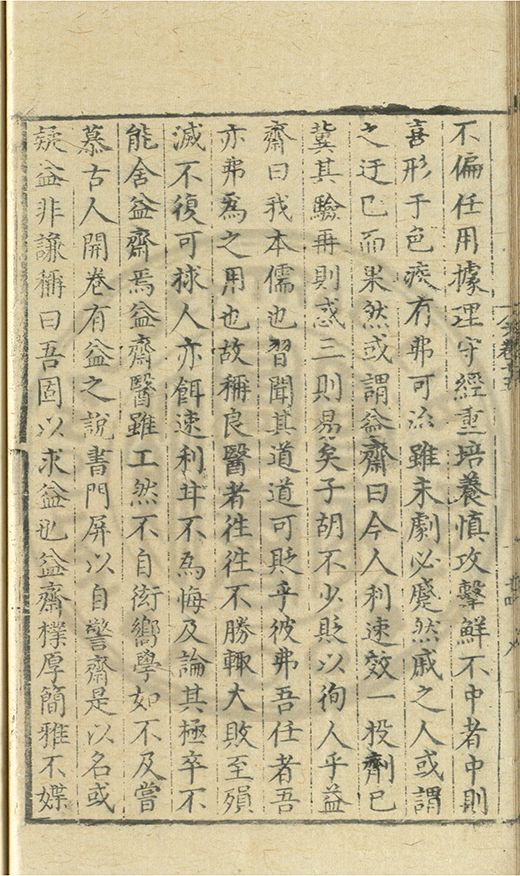 不偏任用據理守經重培養慎攻擊鮮不中者中則
喜形于色疾有弗可治雖未劇必蹙然戚之人或謂
之迂已而果然或謂益齋曰今人利速效一投劑已
冀其驗再則惑三則易矣子胡不少貶以徇人乎益
齋曰我本儒也習聞其道道可貶乎彼弗吾任者吾
亦弗為之用也故稱良醫者徃徃不勝輙大敗至殞
滅不復可捄人亦餌速利幷不為悔及論其極卒不
能舍益齋焉益齋醫雖工然不自衒嚮學如不及嘗
慕古人開卷有益之說書門屏以自警齋是以名或
疑益非謙稱曰吾固以求益也益齋樸厚簡雅不媒